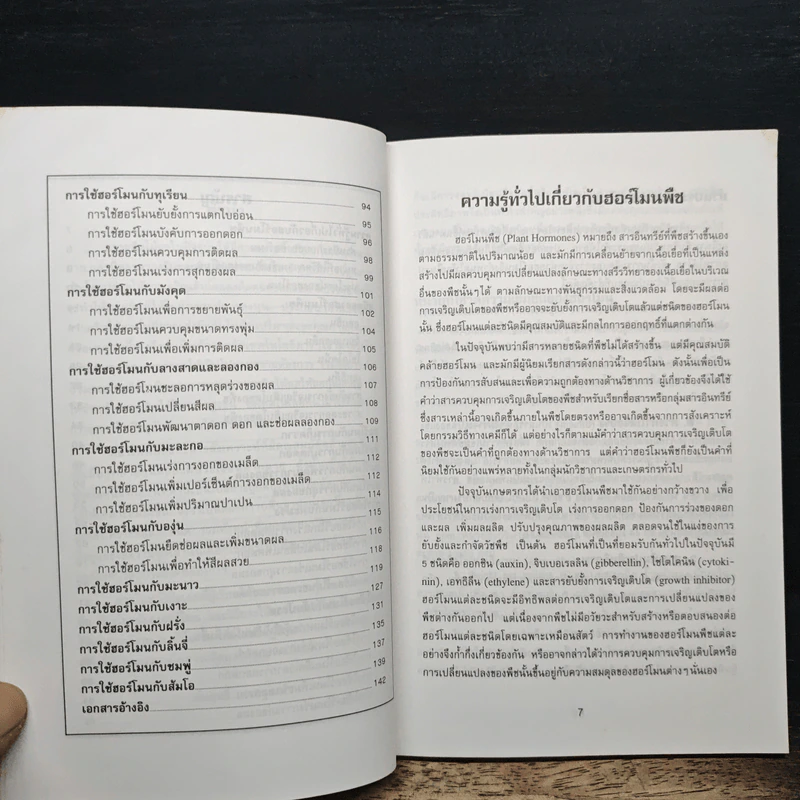 การใช้ฮอร์โมนกับทุเรียน 94
การใช้ฮอร์โมนยับยั้งการแตกใบอ่อน 95
การใช้ฮอร์โมนบังคับการออกดอก 96
การใช้ฮอร์โมนควบคุมการติดผล 98
การใช้ฮอร์โมนเร่งการสุกของผล 99
การใช้ฮอร์โมนกับมังคุด 101
การใช้ฮอร์โมนเพื่อการขยายพันธุ์ 102
การใช้ฮอร์โมนควบคุมขนาดทรงพุ่ม 104
การใช้ฮอร์โมนเพื่อเพิ่มการติดผล 105
การใช้ฮอร์โมนกับลางสาดและลองกอง 106
การใช้ฮอร์โมนชะลอการหลุดร่วงของผล 107
การใช้ฮอร์โมนเปลี่ยนสีผล 108
การใช้ฮอร์โมนพัฒนาตาดอก ดอก และช่อผลลองกอง 109
การใช้ฮอร์โมนกับมะละกอ 111
การใช้ฮอร์โมนเร่งการงอกของเมล็ด 112
การใช้ฮอร์โมนเพิ่มเปอร์เซ็นต์การงอกของเมล็ด 112
การใช้ฮอร์โมนเพิ่มปริมาณปาเปน 114
การใช้ฮอร์โมนกับองุ่น 115
การใช้ฮอร์โมนยืดช่อผลและเพิ่มขนาดผล 116
การใช้ฮอร์โมนเพื่อทำให้สีผลสวย 118
การใช้ฮอร์โมนกับมะนาว 119
การใช้ฮอร์โมนกับเงาะ 127
การใช้ฮอร์โมนกับฝรั่ง 131
การใช้ฮอร์โมนกับลิ้นจี่ 135
การใช้ฮอร์โมนกับชมพู่ 137
การใช้ฮอร์โมนกับส้มโอ 139
เอกสารอ้างอิง 142
ความรู้ทั่วไปเกี่ยวกับฮอร์โมนพืช
ฮอร์โมนพืช (Plant Hormones) หมายถึง สารอินทรีย์ที่พืชสร้างขึ้นเอง
ตามธรรมชาติในปริมาณน้อย และมักมีการเคลื่อนย้ายจากเนื้อเยื่อที่เป็นแหล่ง
สร้างไปมีผลควบคุมการเปลี่ยนแปลงลักษณะทางสรีรวิทยาของเนื้อเยื่อในบริเวณ
อื่นของพืชนั้นๆ ได้ ตามลักษณะทางพันธุกรรมและสิ่งแวดล้อม โดยจะมีผลต่อ
การเจริญเติบโตของพืชหรืออาจจะยับยั้งการเจริญเติบโตแล้วแต่ชนิดของฮอร์โมน
นั้น ซึ่งฮอร์โมนแต่ละชนิดมีคุณสมบัติและมีกลไกการออกฤทธิ์ที่แตกต่างกัน
ในปัจจุบันพบว่ามีสารหลายชนิดที่พืชไม่ได้สร้างขึ้น แต่มีคุณสมบัติ
คล้ายฮอร์โมน และมักมีผู้นิยมเรียกสารดังกล่าวนี้ว่าฮอร์โมน ดังนั้นเพื่อเป็น
การป้องกันการสับสนและเพื่อความถูกต้องทางด้านวิชาการ ผู้เกี่ยวข้องจึงได้ใช้
คำว่าสารควบคุมการเจริญเติบโตของพืชสำหรับเรียกชื่อสารหรือกลุ่มสารอินทรีย์
ซึ่งสารเหล่านี้อาจเกิดขึ้นภายในพืชโดยตรงหรืออาจเกิดขึ้นจากการสังเคราะห์
โดยกรรมวิธีทางเคมีก็ได้ แต่อย่างไรก็ตามแม้คำว่าสารควบคุมการเจริญเติบโต
ของพืชจะเป็นคำที่ถูกต้องทางด้านวิชาการ แต่คำว่าฮอร์โมนพืชก็ยังเป็นคำที่
นิยมใช้กันอย่างแพร่หลายทั้งในกลุ่มนักวิชาการและเกษตรกรทั่วไป
ปัจจุบันเกษตรกรได้นำเอาฮอร์โมนพืชมาใช้กันอย่างกว้างขวาง เพื่อ
ประโยชน์ในการเร่งการเจริญเติบโต เร่งการออกดอก ป้องกันการร่วงของดอก
และผล เพิ่มผลผลิต ปรับปรุงคุณภาพของผลผลิต ตลอดจนใช้ในแง่ของการ
ยับยั้งและกำจัดวัชพืช เป็นต้น ฮอร์โมนที่เป็นที่ยอมรับกันทั่วไปในปัจจุบันมี
5 ชนิดคือ ออกซิน (auxin), จิบเบอเรลลิน (gibberellin), ไซโตไคนิน (cytoki-
nin), เอทธิลีน (ethylene) และสารยับยั้งการเจริญเติบโต (growth inhibitor)
ฮอร์โมนแต่ละชนิดจะมีอิทธิพลต่อการเจริญเติบโตและการเปลี่ยนแปลงของ
พืชต่างกันออกไป แต่เนื่องจากพืชไม่มีอวัยวะสำหรับสร้างหรือตอบสนองต่อ
ฮอร์โมนแต่ละชนิดโดยเฉพาะเหมือนสัตว์ การทำงานของฮอร์โมนพืชแต่ละ
อย่างจึงก้ำกึ่งเกี่ยวข้องกัน หรืออาจกล่าวได้ว่าการควบคุมการเจริญเติบโตหรือ
การเปลี่ยนแปลงของพืชนั้นขึ้นอยู่กับความสมดุลของฮอร์โมนต่างๆ นั่นเอง
7